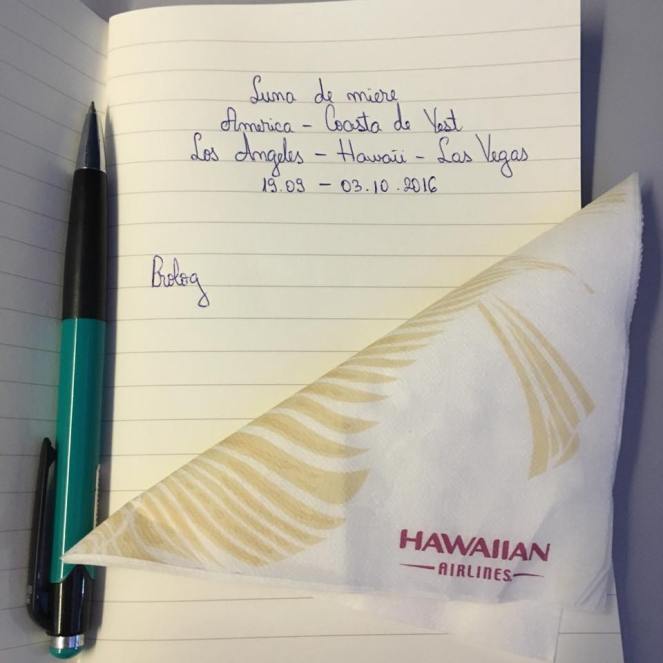 Luna de miere
America - Coasta de Vest
Los Angeles - Hawaii - Las Vegas
19.09 - 03.10.2016
Prolog
HAWAIIAN
AIRLINES